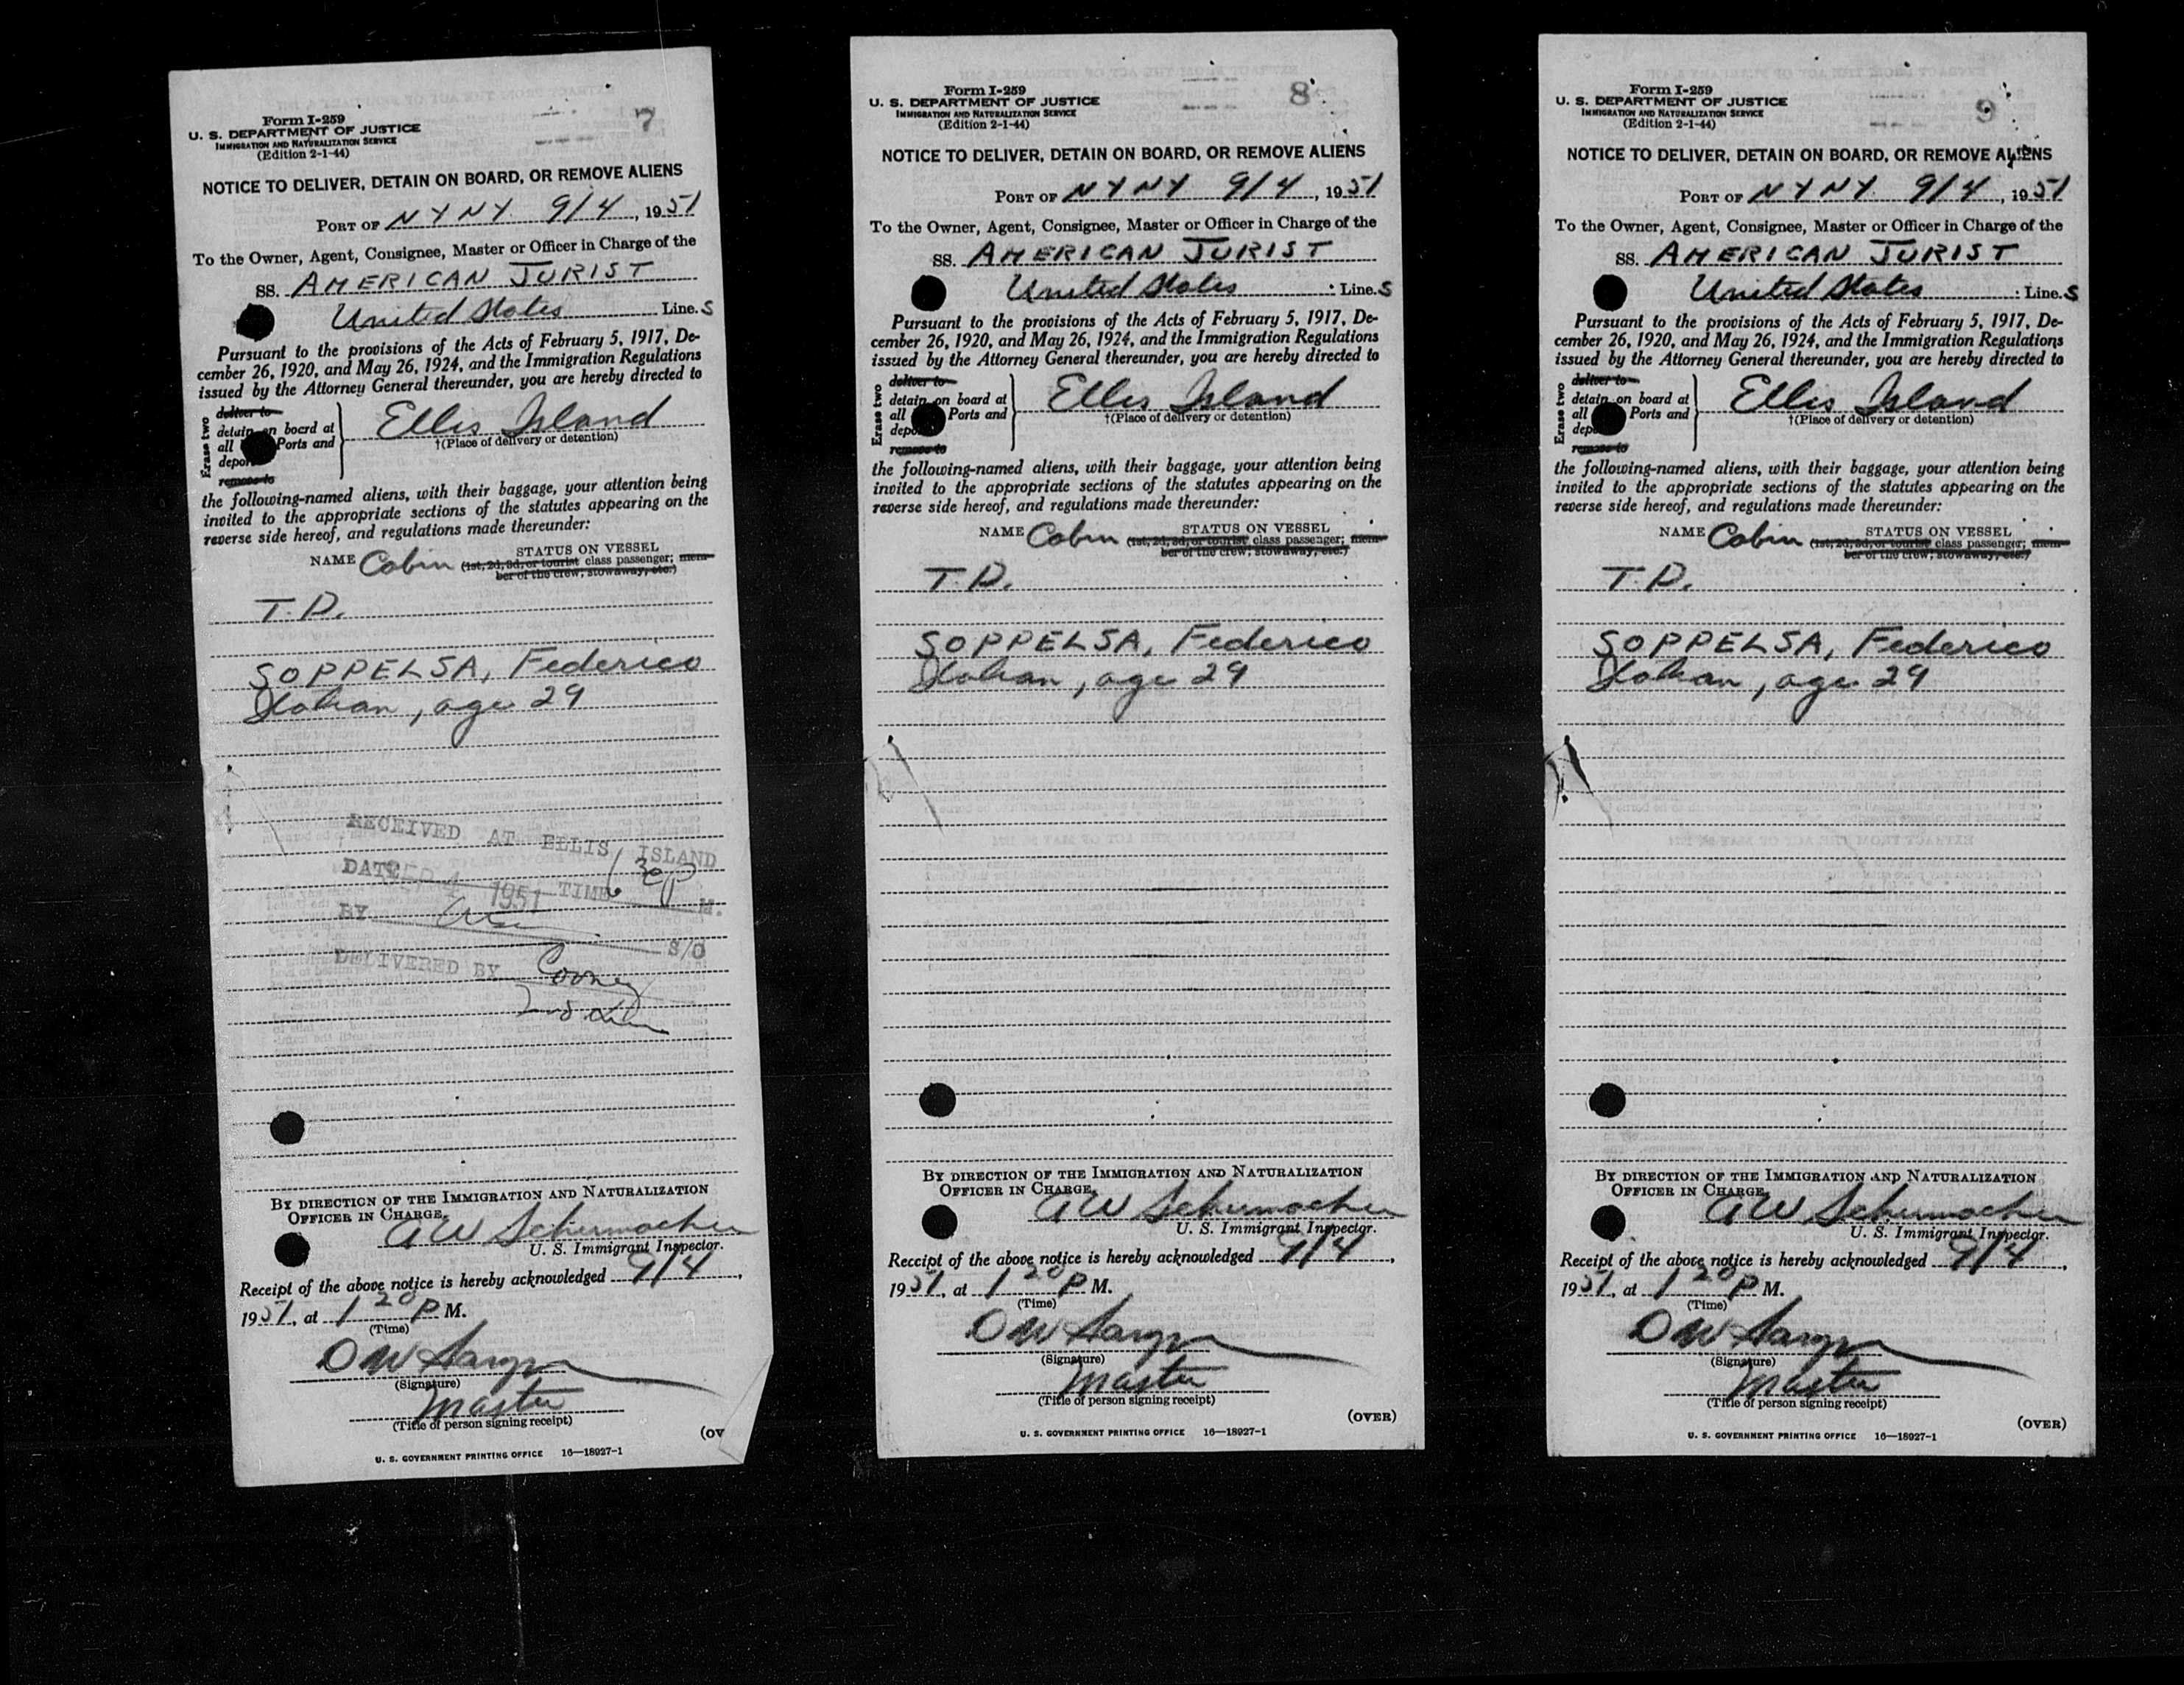 7
Form I-259
U. S. DEPARTMENT OF JUSTICE
IMMIGRATION AND NATURALIZATION SERVICE
(Edition 2-1-44)
NOTICE TO DELIVER, DETAIN ON BOARD, OR REMOVE ALIENS
PORT OF NY NY 9/4, 1951
To the Owner, Agent, Consignee, Master or Officer in Charge of the
SS. AMERICAN JURIST
United States Line.s
Pursuant to the provisions of the Acts of February 5, 1917, De-
cember 26, 1920, and May 26, 1924, and the Immigration Regulations
issued by the Attorney General thereunder, you are hereby directed to
Erase two
deliver to
detain on board at
all Ports and
depor
remove to
Ellis Island
†(Place of delivery or detention)
the following-named aliens, with their baggage, your attention being
invited to the appropriate sections of the statutes appearing on the
reverse side hereof, and regulations made thereunder:
NAME Cabin STATUS ON VESSEL
(1st, 2d, 3d, or tourist class passenger; mem-
ber of the crew, stowaway, etc.)
T.D.
SOPPELSA, Federico
Italian, age 29
RECEIVED AT ELLIS ISLAND
DATE SEP 4 1951 TIME 6 30 P M.
BY S/O
DELIVERED BY Cooney
BY DIRECTION OF THE IMMIGRATION AND NATURALIZATION
OFFICER IN CHARGE,
AW Schumacher
U. S. Immigrant Inspector.
Receipt of the above notice is hereby acknowledged 9/4,
1951, at 1 20 P M.
(Time)
OW
(Signature)
Master
(Title of person signing receipt)
(OV
U. S. GOVERNMENT PRINTING OFFICE 16—18927-1
8
Form I-259
U. S. DEPARTMENT OF JUSTICE
IMMIGRATION AND NATURALIZATION SERVICE
(Edition 2-1-44)
NOTICE TO DELIVER, DETAIN ON BOARD, OR REMOVE ALIENS
PORT OF NY NY 9/4, 1951
To the Owner, Agent, Consignee, Master or Officer in Charge of the
SS. AMERICAN JURIST
United States Line.s
Pursuant to the provisions of the Acts of February 5, 1917, De-
cember 26, 1920, and May 26, 1924, and the Immigration Regulations
issued by the Attorney General thereunder, you are hereby directed to
Erase two
deliver to
detain on board at
all Ports and
depo
remove to
Ellis Island
†(Place of delivery or detention)
the following-named aliens, with their baggage, your attention being
invited to the appropriate sections of the statutes appearing on the
reverse side hereof, and regulations made thereunder:
NAME Cabin STATUS ON VESSEL
(1st, 2d, 3d, or tourist class passenger; mem-
ber of the crew, stowaway, etc.)
T.D.
SOPPELSA, Federico
Italian, age 29
BY DIRECTION OF THE IMMIGRATION AND NATURALIZATION
OFFICER IN CHARGE,
AW Schumacher
U. S. Immigrant Inspector.
Receipt of the above notice is hereby acknowledged 9/4,
1951, at 1 20 P M.
(Time)
OW
(Signature)
Master
(Title of person signing receipt)
(OVER)
U. S. GOVERNMENT PRINTING OFFICE 16—18927-1
9
Form I-259
U. S. DEPARTMENT OF JUSTICE
IMMIGRATION AND NATURALIZATION SERVICE
(Edition 2-1-44)
NOTICE TO DELIVER, DETAIN ON BOARD, OR REMOVE ALIENS
PORT OF NY NY. 9/4, 1951
To the Owner, Agent, Consignee, Master or Officer in Charge of the
SS. AMERICAN JURIST
United States Line.s
Pursuant to the provisions of the Acts of February 5, 1917, De-
cember 26, 1920, and May 26, 1924, and the Immigration Regulations
issued by the Attorney General thereunder, you are hereby directed to
Erase two
deliver to
detain on board at
all Ports and
dep
remove to
Ellis Island
†(Place of delivery or detention)
the following-named aliens, with their baggage, your attention being
invited to the appropriate sections of the statutes appearing on the
reverse side hereof, and regulations made thereunder:
NAME Cabin STATUS ON VESSEL
(1st, 2d, 3d, or tourist class passenger; mem-
ber of the crew, stowaway, etc.)
T.D.
SOPPELSA, Federico
Italian, age 29
BY DIRECTION OF THE IMMIGRATION AND NATURALIZATION
OFFICER IN CHARGE,
AW Schumacher
U. S. Immigrant Inspector.
Receipt of the above notice is hereby acknowledged 9/4,
1951, at 1 20 P M.
(Time)
OW
(Signature)
Master
(Title of person signing receipt)
(OVER)
U. S. GOVERNMENT PRINTING OFFICE 16—18927-1